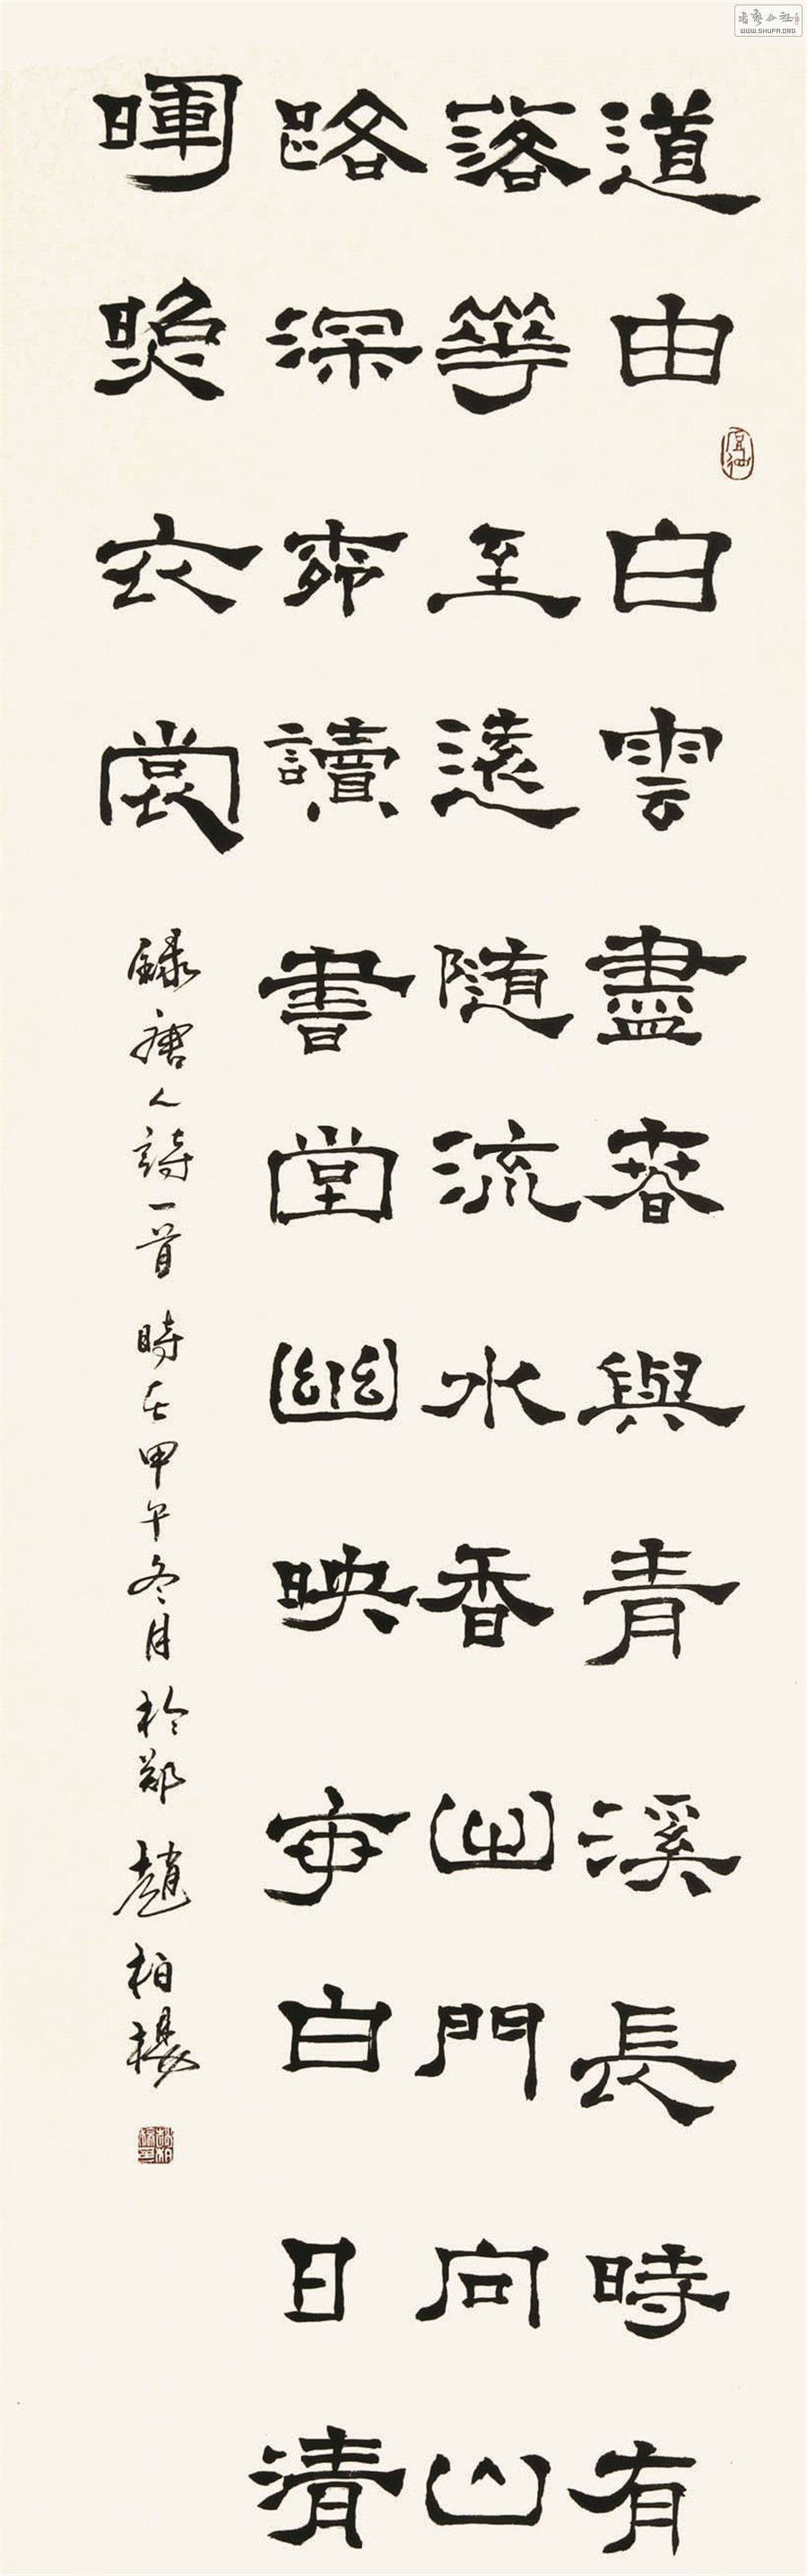 道由白雲盡春與青溪長時有
落華至遠隨流水香出門向山
路深柳讀書堂幽映每白日清
暉照衣裳
錄唐人詩一首 時在甲午冬月於鄭 趙柏
書藝公社
WWW.SHUFA.ORG